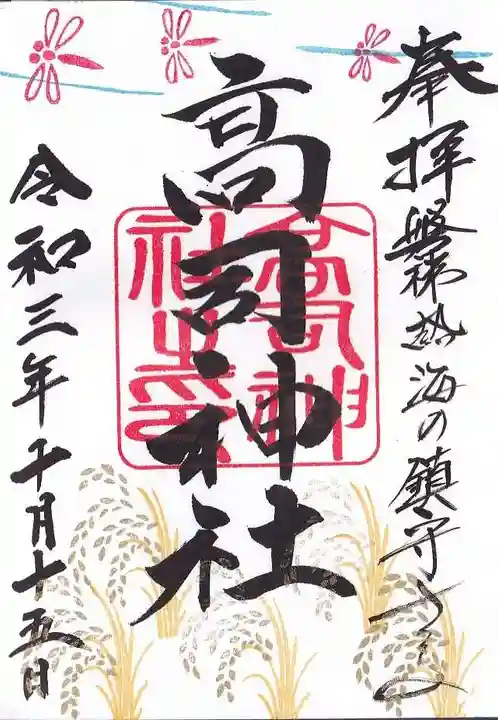 奉拝 磐梯熱海の鎮守さま
高司神社
高司神社之印
令和三年十月十五日